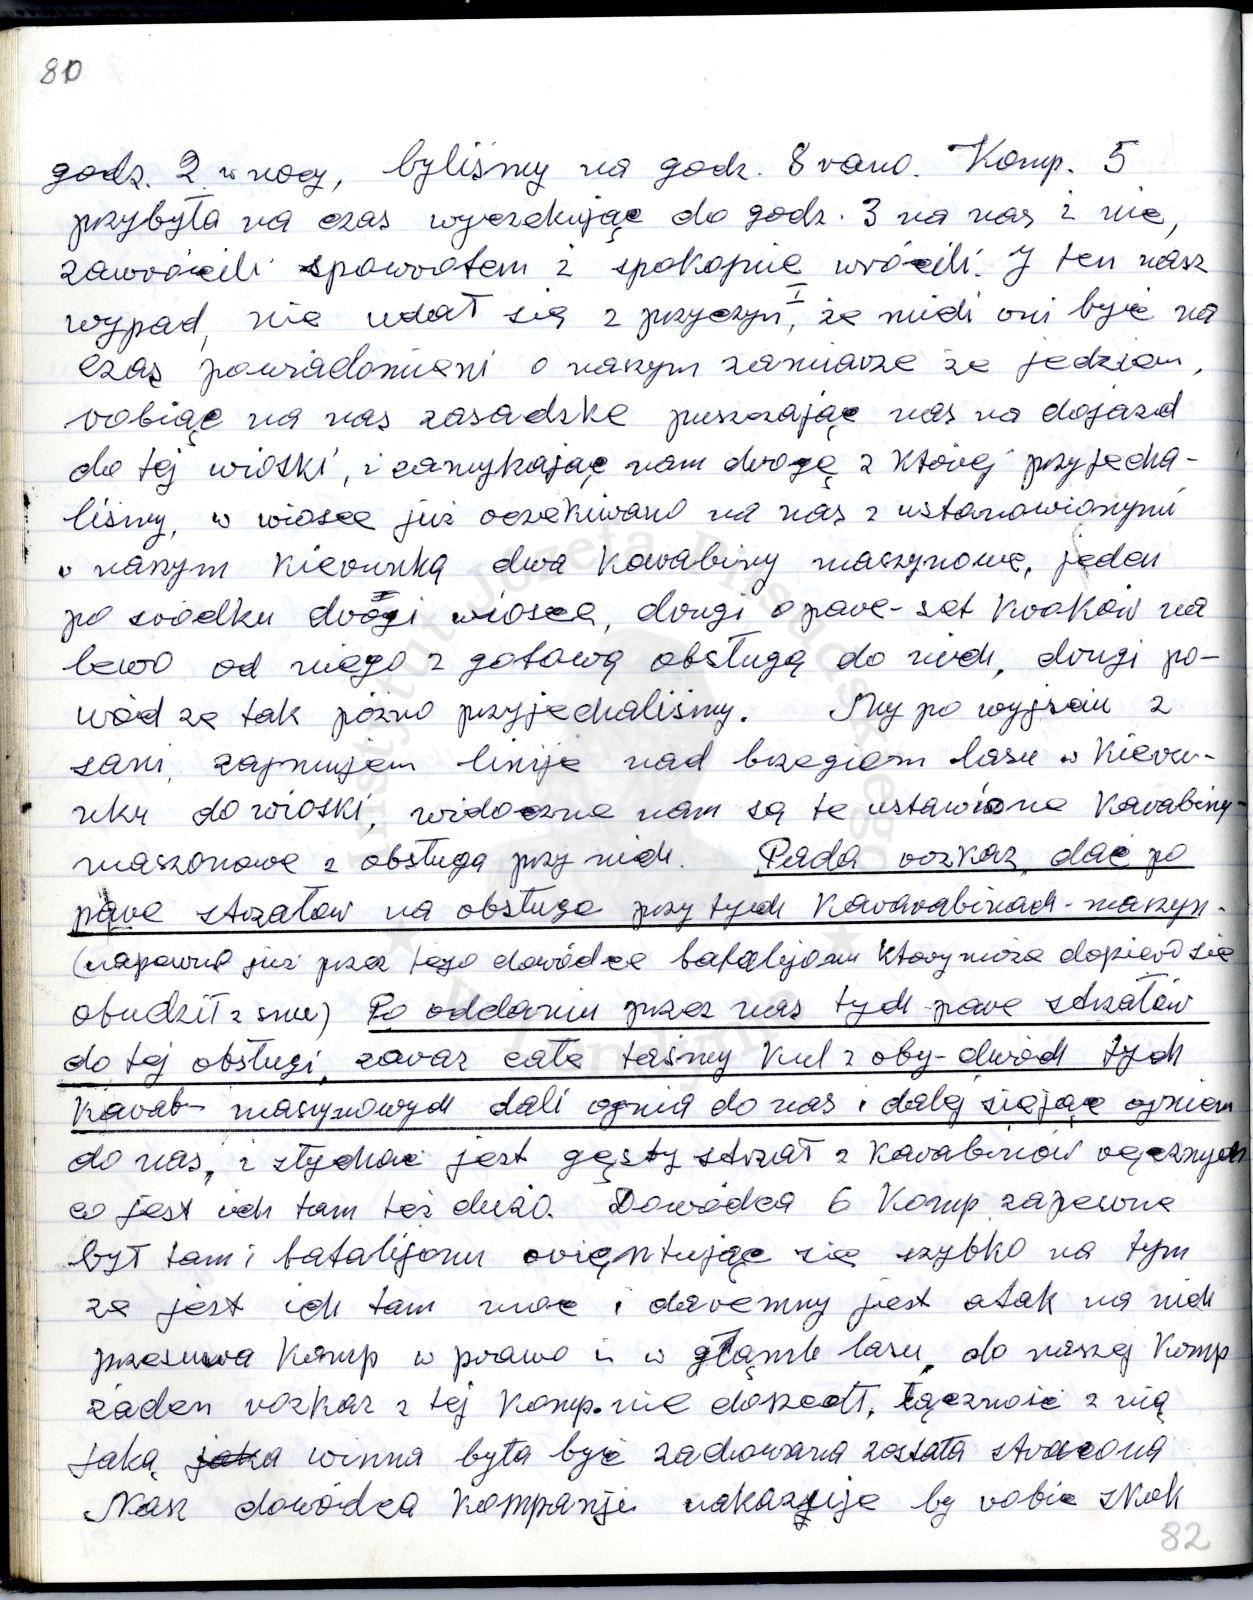 80
godz. 2 w nocy, byliśmy na godz. 8 rano. Komp. 5
przybyła na czas wyczekując do godz. 3 na nas i nic,
zawrócili spowrotem i spokojnie wrócili. I ten nasz
wypad, nie udał się z przyczyn, I że mieli oni być na
czas powiadomieni o naszym zamiarze że jedziem,
robiąc na nas zasadzke puszczając nas na dojazd
do tej wioski, i zamykając nam drogę z której przyjecha-
liśmy, w wiosce już oczekiwano na nas z ustanowionymi
w naszym kierunką dwa karabiny maszynowe, jeden
po środku drogi wiosce, drugi o pare-set kroków na
lewo od niego z gotową obsługą do nich, drugi po-
wód że tak późno przyjechaliśmy. My po wyjściu z
sani, zajmujem linije nad brzegiem lasu w kieru-
nku do wioski, widoczne nam są te ustawione karabiny-
maszonowe z obsługa przy nich. Pada rozkaz dać po
pare strzałów na obsługe przy tych kararabinach-maszyn.
(napewno już przez tego dowódce batalijonu który może dopiero się
obudził z snu) Po oddaniu przez nas tych pare strzałów
do tej obsługi, zaraz całe taśmy kul z oby-dwóch tych
karab- maszynowych dali ognia do nas i dalej siejąc ogniem
do nas, i słychać jest gęsty strzał z karabinów ręcznych
co jest ich tam też dużo. Dowódca 6 Komp. zapewne
był tam i batalijonu orięntując się szybko na tym
że jest ich tam moc i daremny jest atak na nich
przesuwa Komp w prawo i w głąmb lasu, do naszej Komp
żaden rozkaz z tej Komp. nie doszedł, łączność z nią
jaką jaka winna była być zachowana została stracona
Nasz dowódca Kompanji nakazuje by robić skok
82
Instytut Józefa Piłsudskiego
w Londynie